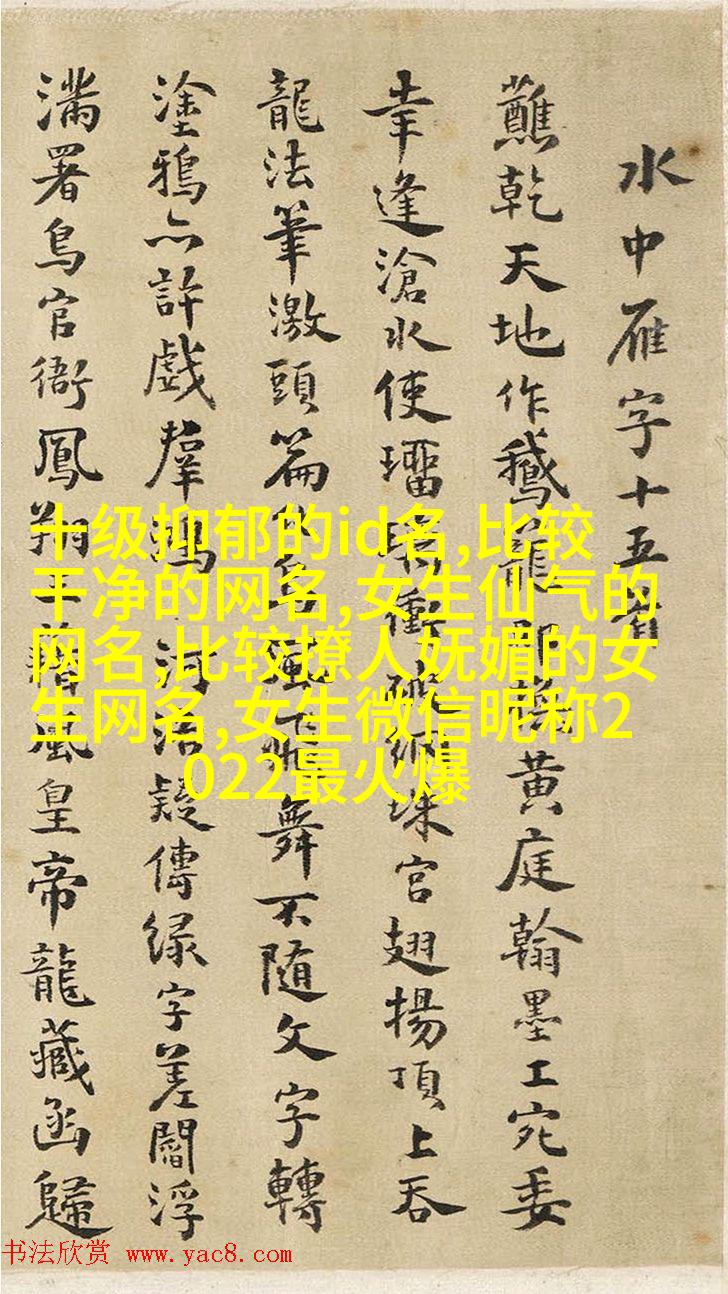 水中雁字十五首
蘸乾天地作鵝籠
黄庭翰墨工宛委
幸逢滄水使
珠宫翅揚頂上吞
龍法筆激頭篇
舞不随文字轉
塗鴉亦許戲群鴨
疑傳緑字差閻浮
滿署鳥官衙鳳翔
皇帝龍藏函歸
十级抑郁的id名,比较
干净的网名,女生仙气的
网名,比较撩人妩媚的女
生网名,女生微信昵称2
022最火爆
书法欣赏 www.yac8.com